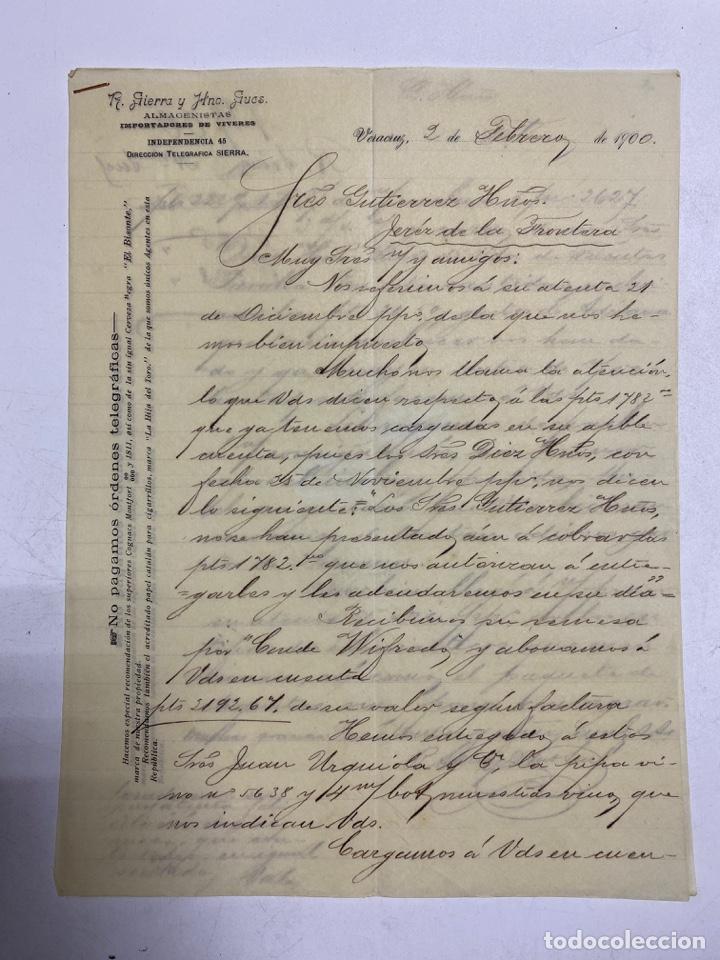 R. Sierra y Hno. Sucs.
ALMACENISTAS
IMPORTADORES DE VIVERES
INDEPENDENCIA 45
DIRECCIÓN TELEGRAFICA SIERRA.
Veracruz, 2 de Febrero de 1900.
Sres Gutierrez Hnos.
Jeréz de la Frontera
Muy Sres ns/ y amigos:
Nos referimos á su atenta 21
de Diciembre ppo, de la que nos he-
mos bien impuesto,
Mucho nos llama la atención
lo que Vds dicen respecto á las pts 1782=
que ya tenemos cargadas en su apble
cuenta, pues los Sres Diez Hnos, con
fecha de Noviembre ppo, nos dicen
lo siguiente: "Los Sres Gutierrez Hnos,
no se han presentado, aún á cobrar las
pts 1782. que nos autorizan á entre-
=garles y les adeudaremos en su día"=
Recibimos su remesa
por "Conde Wifredo", y abonamos á
Vds en cuenta
pts 2192.67. de su valor según factura
Hemos entregado á estos
Sres Juan Urquiola y Ca, la pipa vi-
no no 5638 y 4 m/ bot, muestras vino, que
nos indican Vds.
Cargamos á Vds en cuen-
No pagamos órdenes telegráficas—
Hacemos especial recomendación de los superiores Cognacs Montfort y 1811, así como de la sin igual Cerveza negra "El Bisonte,"
marca de nuestra propiedad.
Recomendamos también el acreditado papel catalán para cigarrillos, marca "La Hija del Toro," de la que somos únicos Agentes en esta
República.
todocoleccion.net